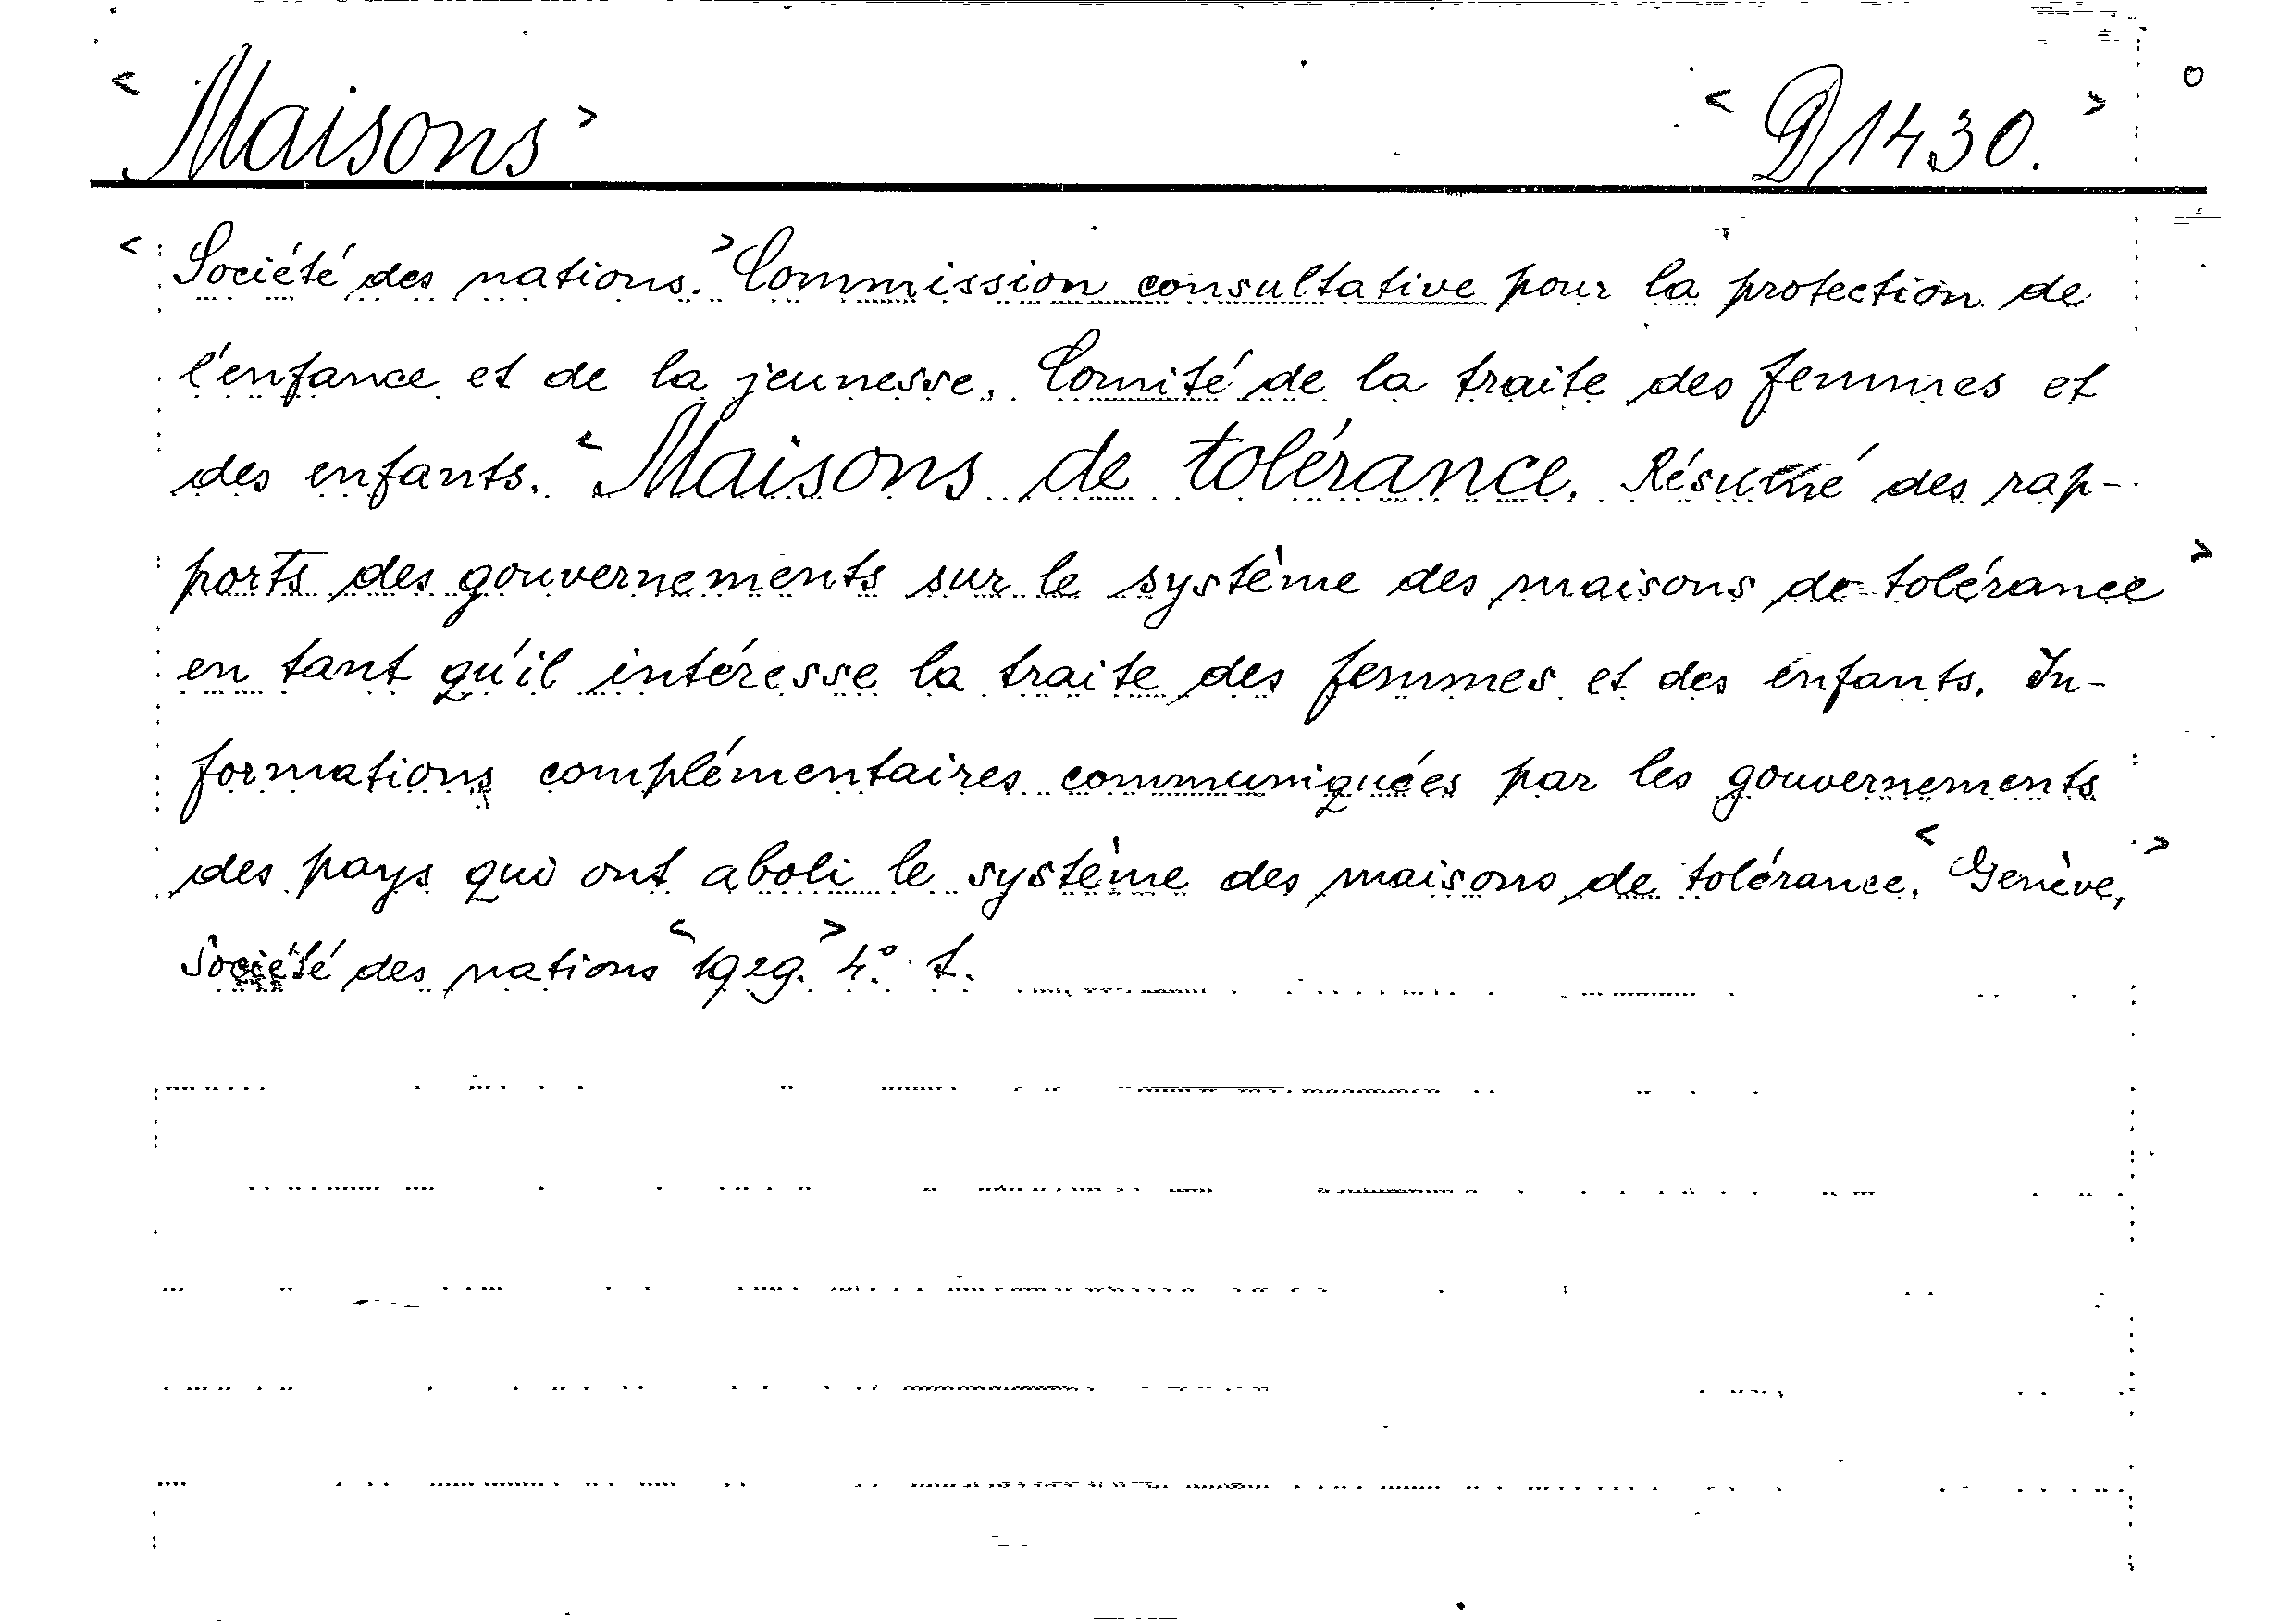 < Maisons > < D 1430. >
< Société des nations. > Commission consultative pour la protection de
l'enfance et de la jeunesse. Comité de la traite des femmes et
des enfants. < Maisons de tolérance. Résumé des rap-
ports des gouvernements sur le système des maisons de tolérance >
en tant qu'il intéresse la traite des femmes et des enfants. In-
formations complémentaires communiquées par les gouvernements
des pays qui ont aboli le système des maisons de tolérance. < Genève, >
Société des nations < 1929. > 4°.